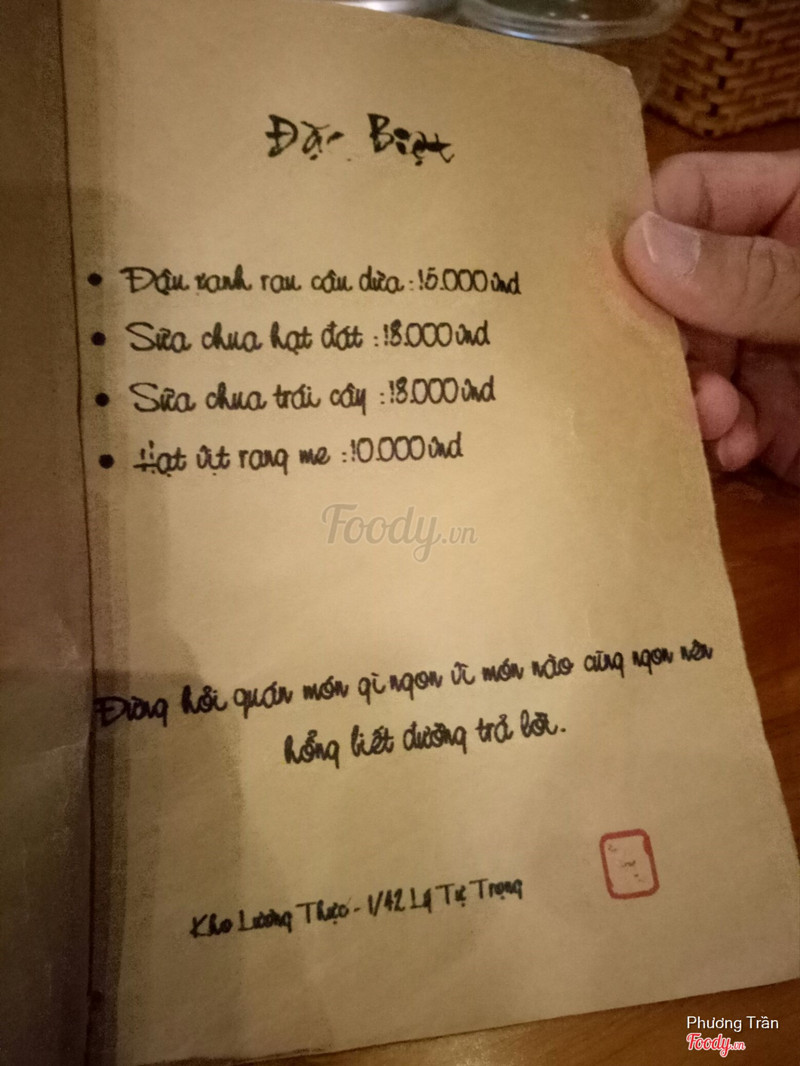 Đặc Biệt
• Đậu xanh rau câu dừa : 15.000 vnd
• Sữa chua hạt đát : 18.000 vnd
• Sữa chua trái cây : 18.000 vnd
• Hạt vịt rang me : 10.000 vnd
Foody.vn
Đừng hỏi quán món gì ngon vì món nào cũng ngon nên
hổng biết đường trả lời.
Kho Lương Thực - 1/42 Lý Tự Trọng
Phương Trần
Foody.vn